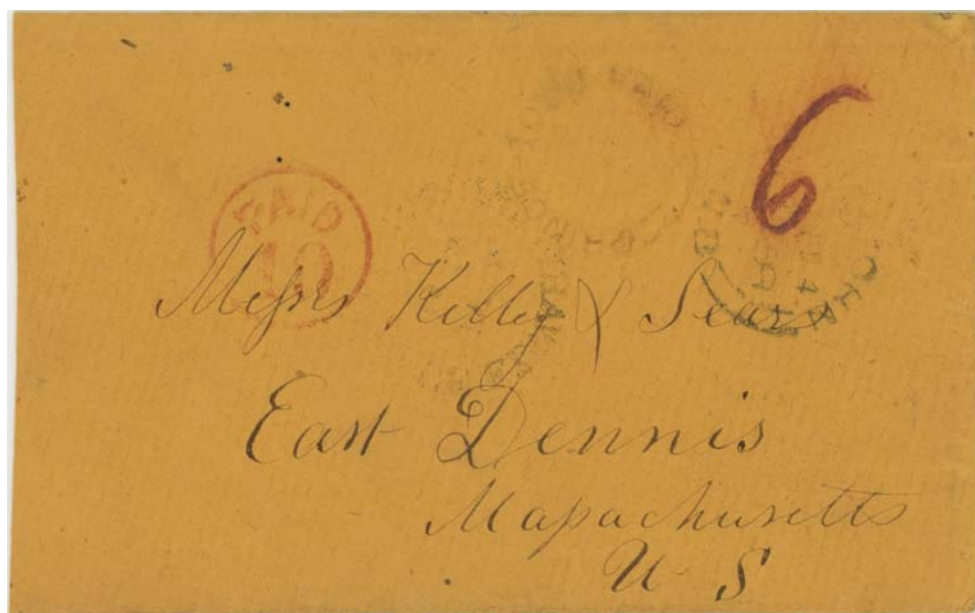 6
PAID
10
Messrs Kelley & Sears
East Dennis
Massachusetts
U S